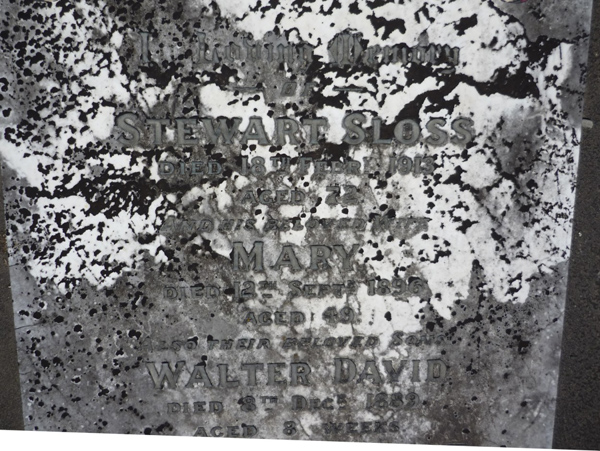 In Loving Memory
OF
STEWART SLOSS
DIED 18TH FEBRY 1913
AGED 72
AND HIS BELOVED WIFE
MARY
DIED 12TH SEPTR 1896
AGED 49
ALSO THEIR BELOVED SON
WALTER DAVID
DIED 8TH DECR
AGED 3 WEEKS